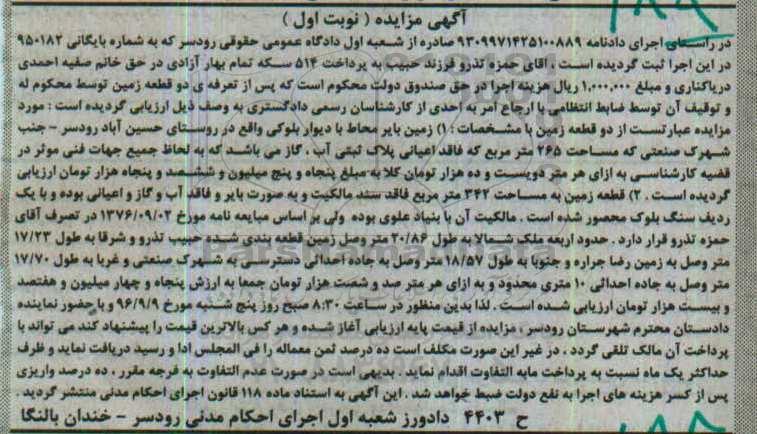 آگهی مزایده ( نوبت اول )
در راستای اجرای دادنامه ۹۳۰۹۹۷۱۴۲۵۱۰۰۸۸۹ صادره از شعبه اول دادگاه عمومی حقوقی رودسر که به شماره بایگانی ۹۵۰۱۸۲
در این اجرا ثبت گردیده است ، آقای حمزه تذرو فرزند حبیب به پرداخت ۵۱۴ سکه تمام بهار آزادی در حق خانم صفیه احمدی
دریاکناری و مبلغ ۱,۰۰۰,۰۰۰ ریال هزینه اجرا در حق صندوق دولت محکوم است که پس از تعرفه ی دو قطعه زمین توسط محکوم له
و توقیف آن توسط ضابط انتظامی با ارجاع امر به احدی از کارشناسان رسمی دادگستری به وصف ذیل ارزیابی گردیده است : مورد
مزایده عبارتست از دو قطعه زمین با مشخصات : ۱) زمین بایر محاط با دیوار بلوکی واقع در روستای حسین آباد رودسر - جنب
شهرک صنعتی که مساحت ۲۶۵ متر مربع که فاقد اعیانی پلاک ثبتی آب ، گاز می باشد که به لحاظ جمیع جهات فنی موثر در
قضیه کارشناسی به ازای هر متر دویست و ده هزار تومان کلا به مبلغ پنجاه و پنج میلیون و ششصد و پنجاه هزار تومان ارزیابی
گردیده است . ۲) قطعه زمین به مساحت ۳۴۲ متر مربع فاقد سند مالکیت و به صورت بایر و فاقد آب و گاز و اعیانی بوده و با یک
ردیف سنگ بلوک محصور شده است . مالکیت آن با بنیاد علوی بوده ولی بر اساس مبایعه نامه مورخ ۱۳۷۶/۰۹/۰۲ در تصرف آقای
حمزه تذرو قرار دارد . حدود اربعه ملک شمالا به طول ۲۰/۸۶ متر وصل زمین قطعه بندی شده حبیب تذرو و شرقا به طول ۱۷/۲۳
متر وصل به زمین رضا جراره و جنوبا به طول ۱۸/۵۷ متر وصل به جاده احداثی دسترسی به شهرک صنعتی و غربا به طول ۱۷/۷۰
متر وصل به جاده احداثی ۱۰ متری محدود و به ازای هر متر صد و شصت هزار تومان جمعا به ارزش پنجاه و چهار میلیون و هفتصد
و بیست هزار تومان ارزیابی شده است . لذا بدین منظور در ساعت ۸:۳۰ صبح روز پنج شنبه مورخ ۹۶/۹/۹ و با حضور نماینده
دادستان محترم شهرستان رودسر ، مزایده از قیمت پایه ارزیابی آغاز شده و هر کس بالاترین قیمت را پیشنهاد کند می تواند با
پرداخت آن مالک تلقی گردد . در غیر این صورت مکلف است ده درصد ثمن معماله را فی المجلس ادا و رسید دریافت نماید و ظرف
حداکثر یک ماه نسبت به پرداخت مابه التفاوت اقدام نماید . بدیهی است در صورت عدم التفاوت به فرجه مقرر ، ده درصد واریزی
پس از کسر هزینه های اجرا به نفع دولت ضبط خواهد شد . این آگهی به استناد ماده ۱۱۸ قانون اجرای احکام مدنی منتشر گردید .
ح ۴۴۰۳ دادورز شعبه اول اجرای احکام مدنی رودسر - خندان بالنگا